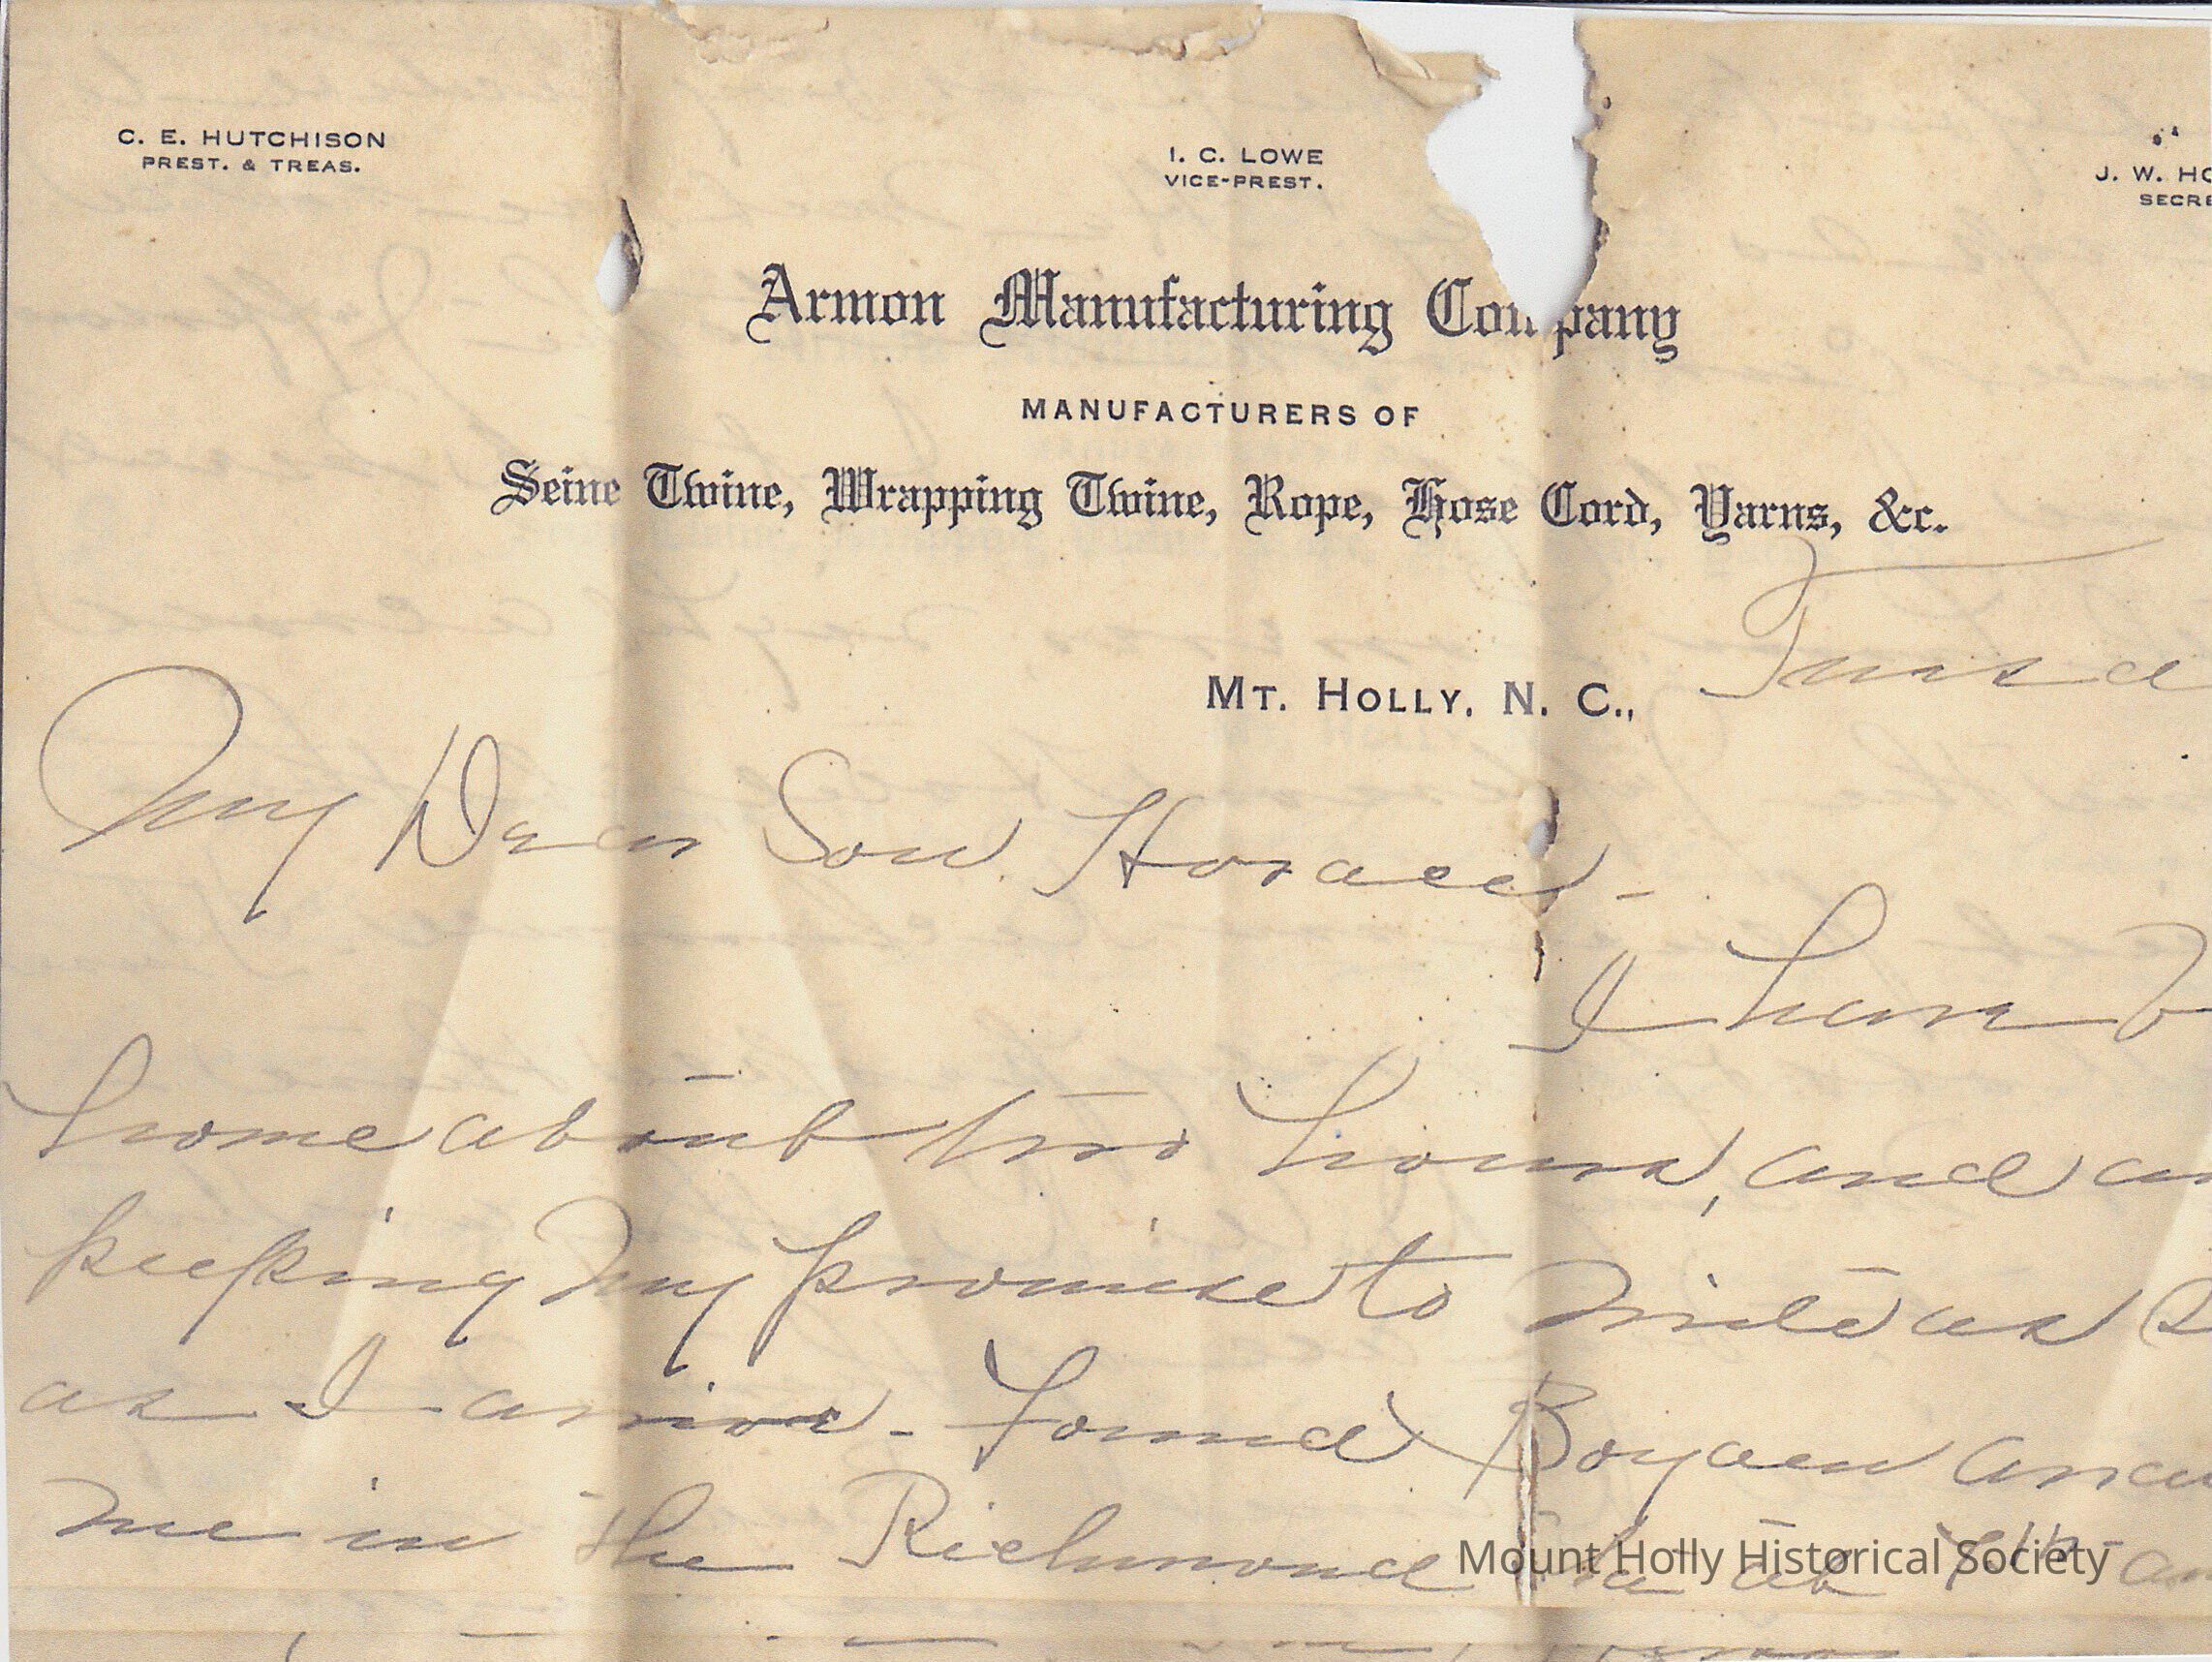 C. E. HUTCHISON
PREST. & TREAS.
I. C. LOWE
VICE-PREST.
J. W. HO
SECRE
Armon Manufacturing Company
MANUFACTURERS OF
Seine Twine, Wrapping Twine, Rope, Hose Cord, Yarns, &c.
MT. HOLLY, N. C.,
My Dear Son Horace-
I have
home about two hours, and
keeping my promise to write as
as I arrive- Found
me in the Richmond
Mount Holly Historical Society